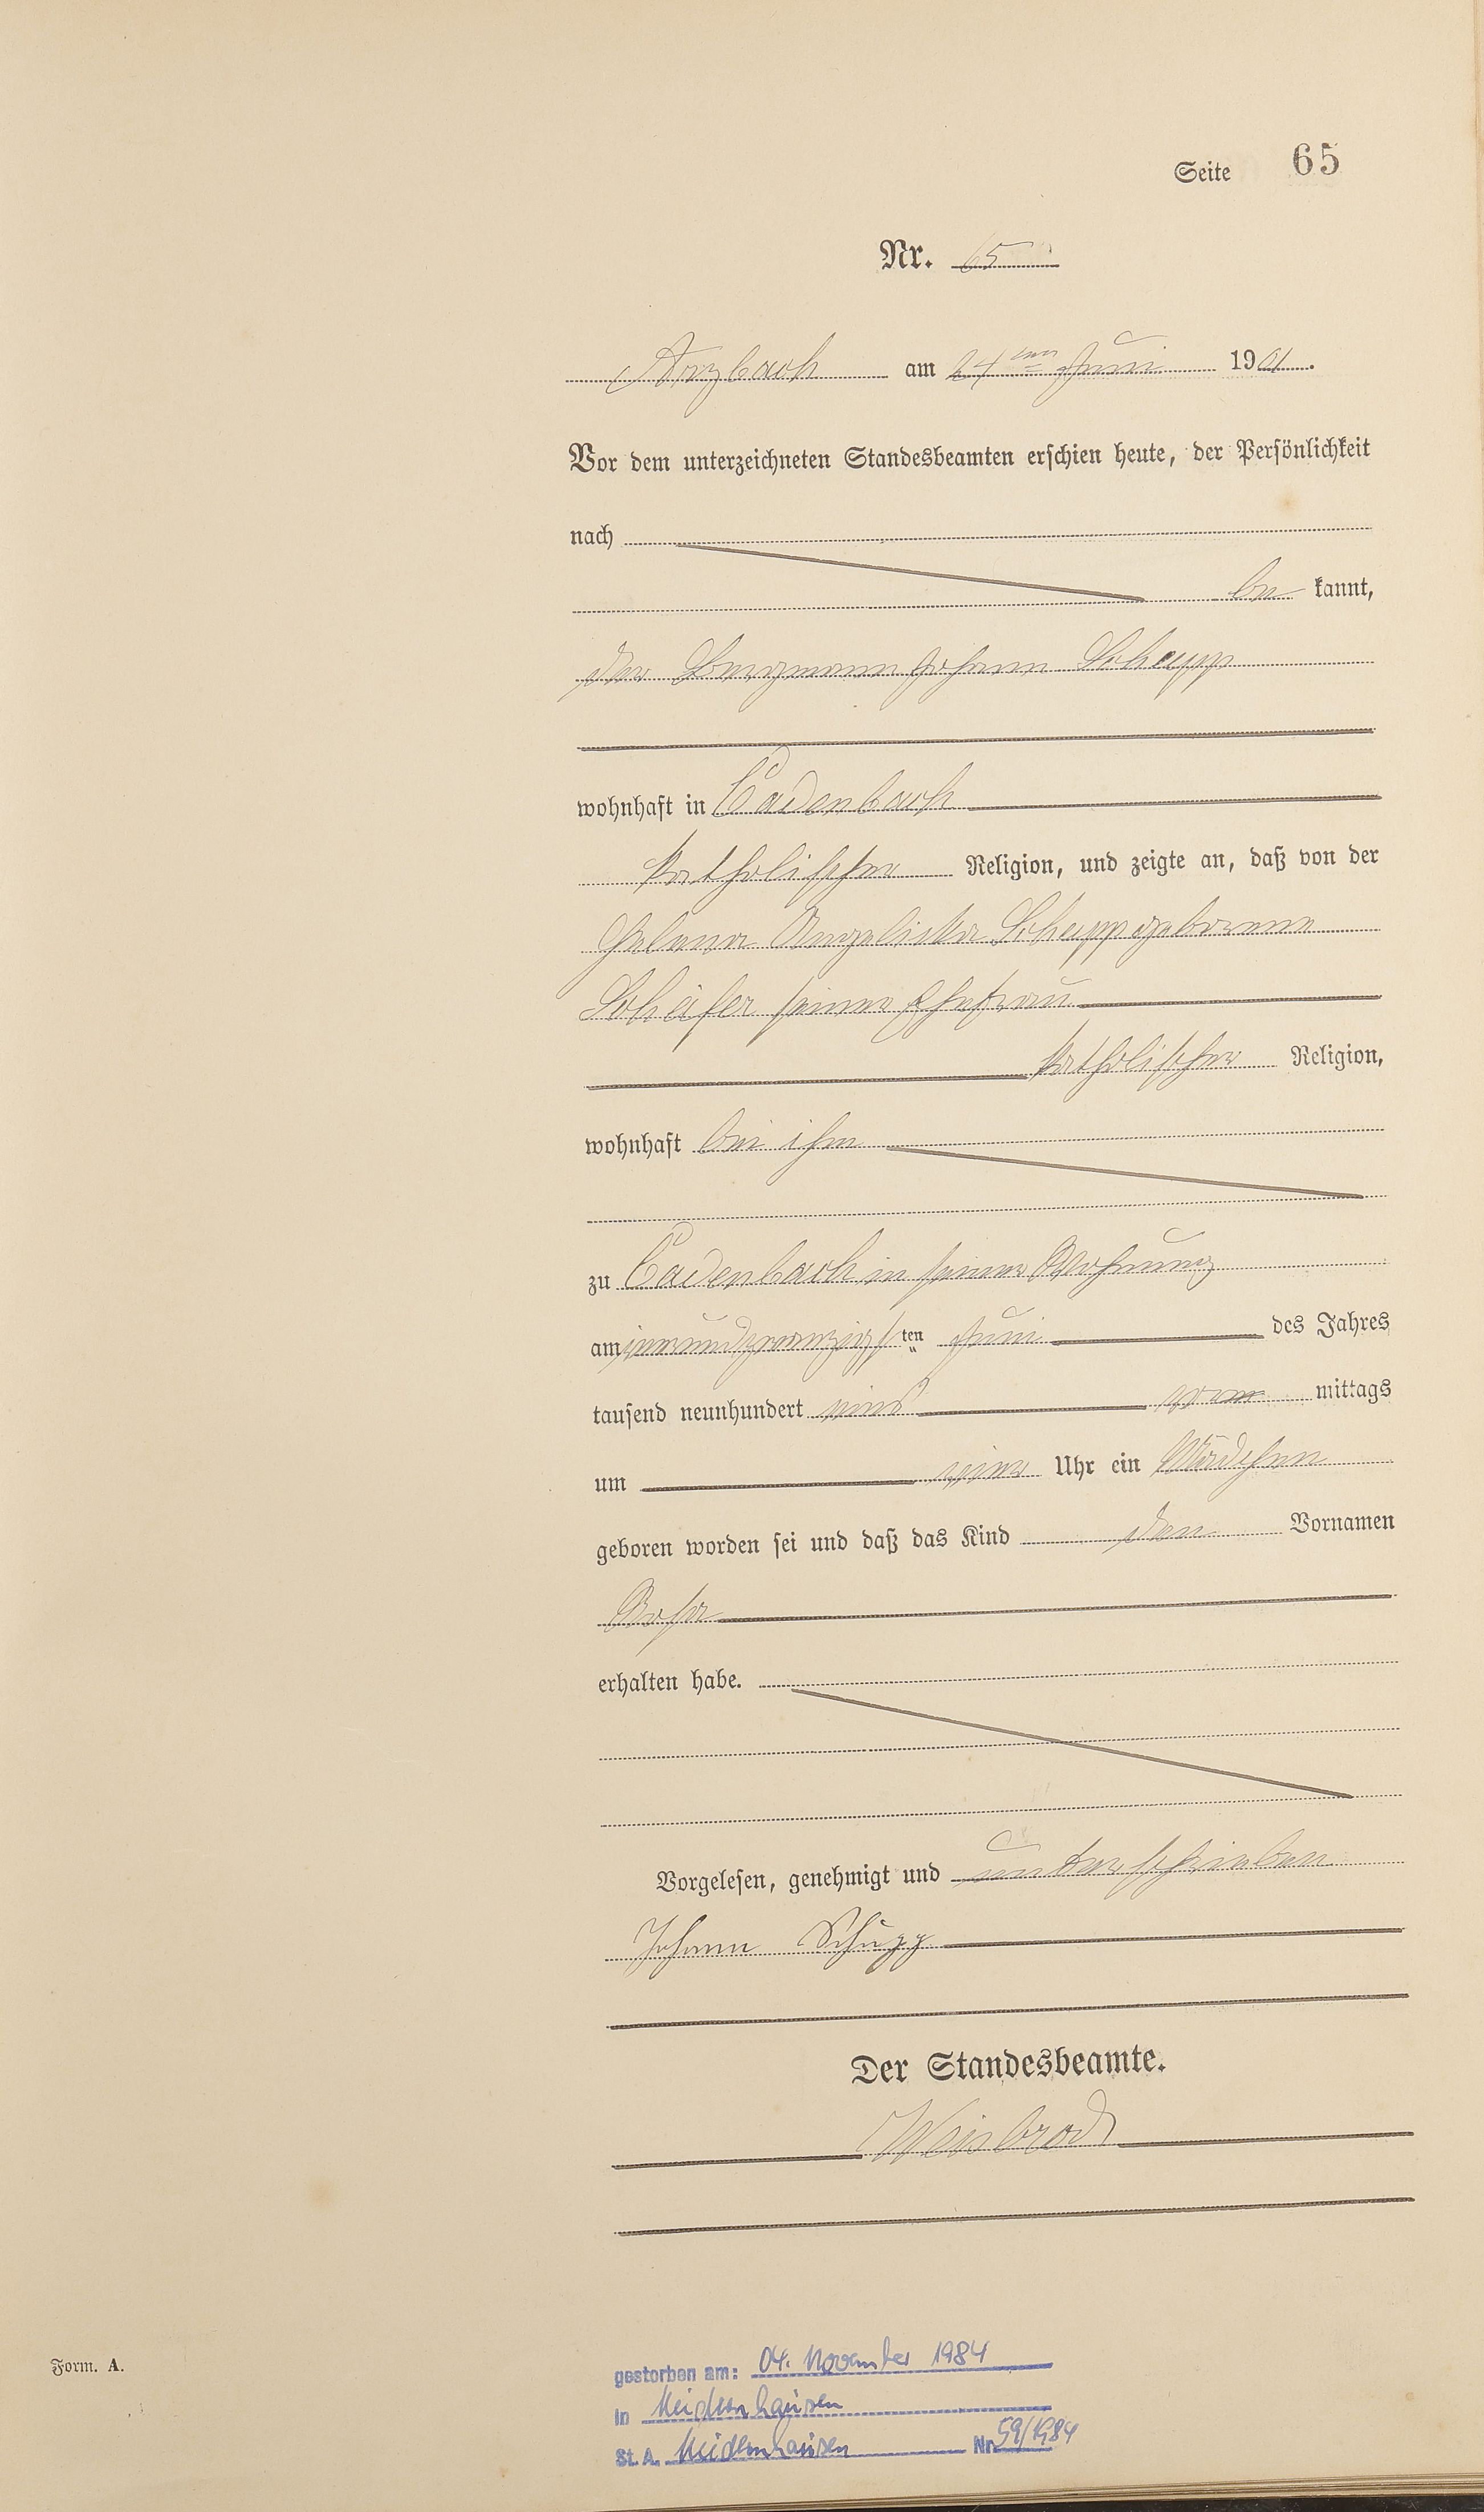 Seite 65
Nr. 65
Arzbach am 24ten Juni 1901.
Vor dem unterzeichneten Standesbeamten erschien heute, der Persönlichkeit
nach
be kannt,
der Bergmann Johann Schupp
wohnhaft in Cadenbach
katholischer Religion, und zeigte an, daß von der
Helena Angelika Schupp geborene
Schäfer seiner Ehefrau
katholischer Religion,
wohnhaft bei ihm
zu Cadenbach in seiner Wohnung
am einundzwanzigsten Juni des Jahres
tausend neunhundert eins mittags
um Uhr ein Mädchen
geboren worden sei und daß das Kind den Vornamen
Rosa
erhalten habe.
Vorgelesen, genehmigt und unterschrieben
Johann Schupp
Der Standesbeamte.
Weisbrod
Form. A.
gestorben am: 04. November 1984
in
St. A. Nr. 59/1984